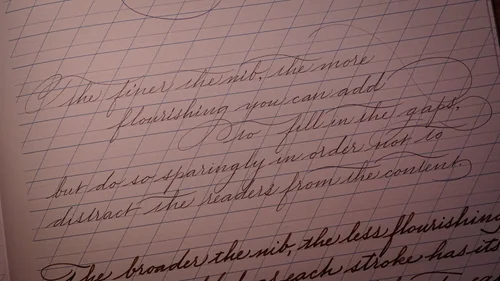 The finer the nib, the more
flourishing you can add
to fill in the gaps,
but do so sparingly in order not to
distract the readers from the content
The broader the nib, the less flourishing
each stroke has its